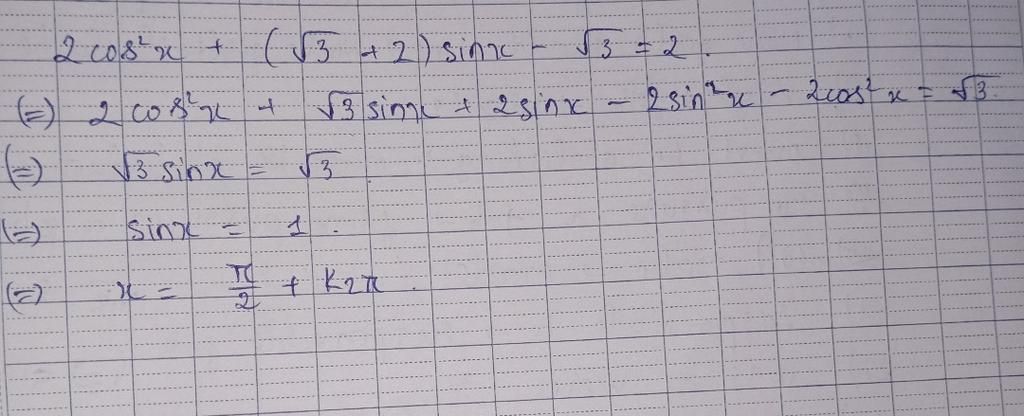 2 cos²x + (√3 + 2) sinx - √3 = 2.
(=) 2 cos²x + √3 sinx + 2 sinx - 2 sin²x - 2cos²x = √3.
(=) √3 sinx = √3.
(=) sinx = 1.
(=) x = π/2 + K2π.